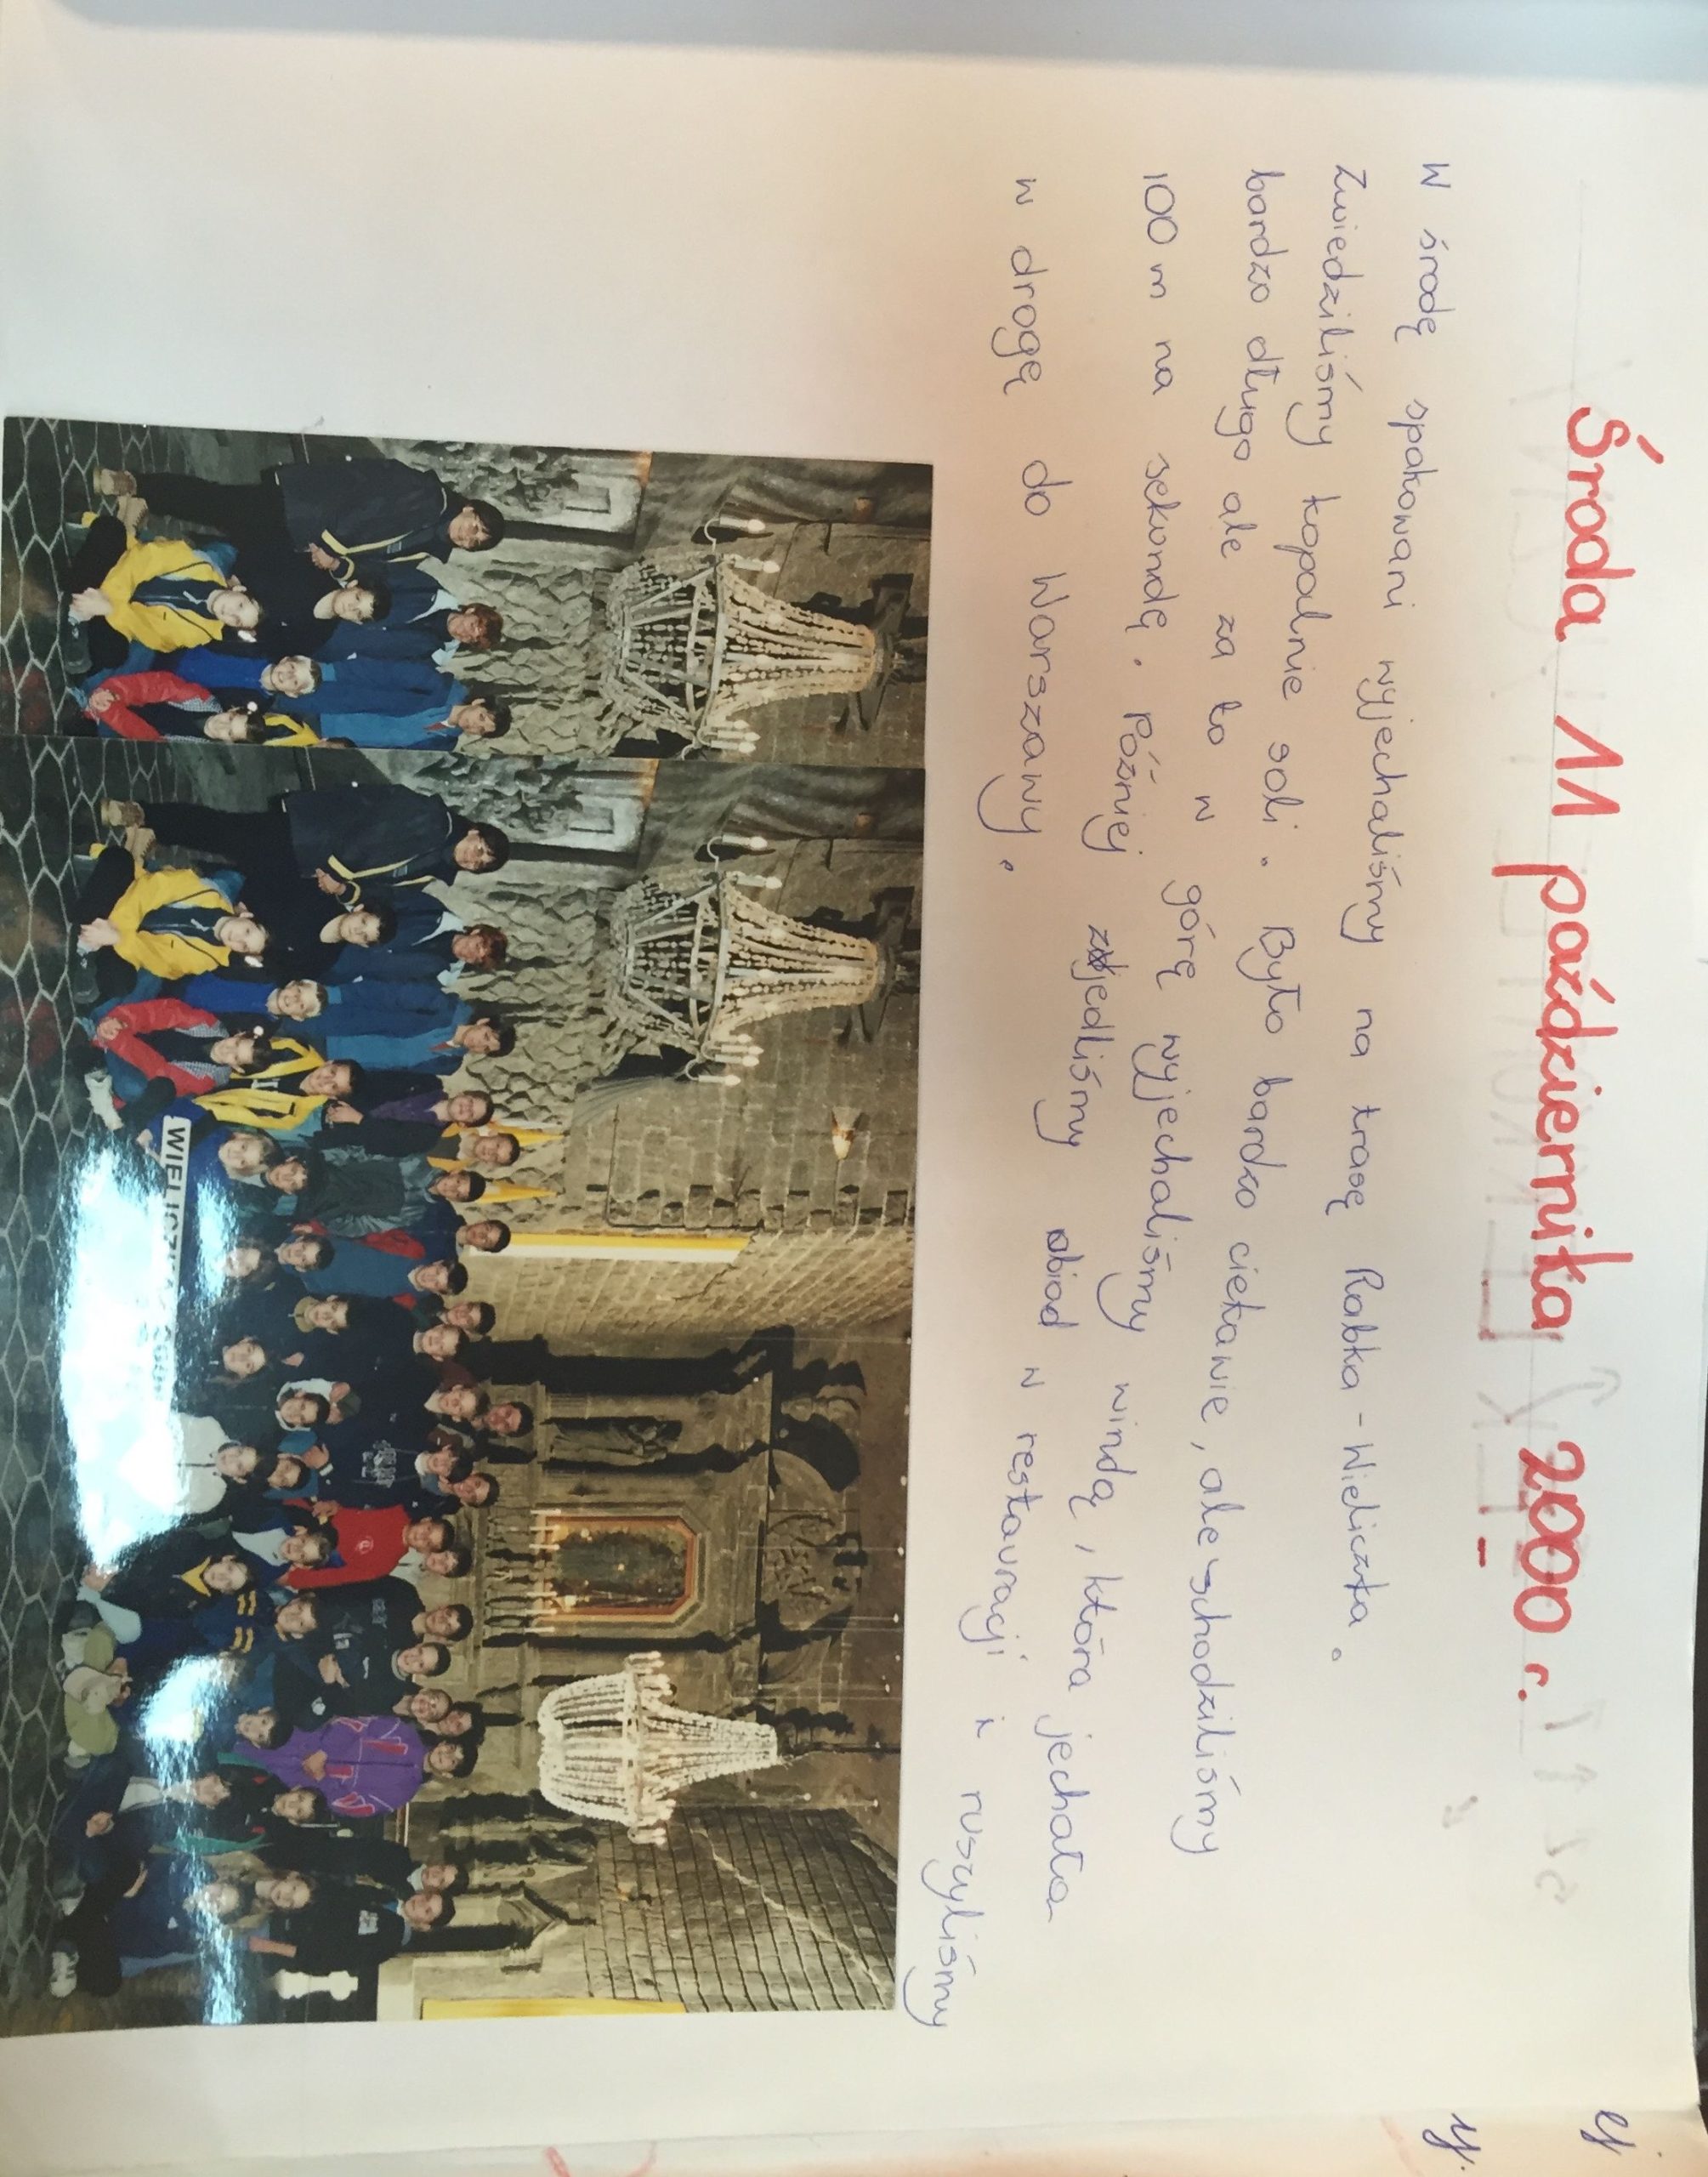 Środa 11 października 2000 r.
W środę spakowani wyjechaliśmy na trasę Rabka - Wieliczka.
Zwiedziliśmy kopalnie soli. Było bardzo ciekawie, ale schodziliśmy
bardzo długo ale za to w górę wyjechaliśmy windą, która jechała
100 m na sekundę. Później zjedliśmy obiad w restauracji i ruszyliśmy
w drogę do Warszawy.
WIELICZKA